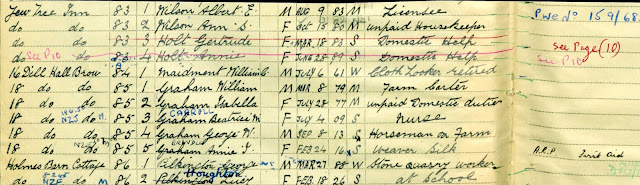 Yew Tree Inn 83 1 Wilson Albert E. M Aug 9 83 M Licensee Pwe No 159/68
do do 83 2 Wilson Ann S. F Oct 13 80 M unpaid Housekeeper
do do 83 3 Holt Gertrude F Mar 18 83 S Domestic Help see Page (10)
do See P10 do 83 4 Holt Annie F 89 S Domestic Help See P10
16 Dill Hall Brow 84 1 Maidment William C. M July 6 61 W Cloth Looker retired
18 do do 85 1 Graham William M Mar 8 79 M Farm Carter
18 do do 85 2 Graham Isabella F July 28 77 M unpaid Domestic duties
CARROLL
18 do do NZJ M. 85 3 Graham Beatrice M. F July 4 09 S Nurse
18 do do 85 4 Graham George W. M Sep 8 13 S Horseman on Farm
18 do do M 85 5 Graham Annie I. F Feb 24 16 S Weaver Silk A.R.P. First Aid
Holmes Barn Cottage 86 1 Pilkington George M Mar 27 88 W Stone quarry worker
Houghton
do NZF do M 86 2 Pilkington Lucy F Feb 18 26 S at School